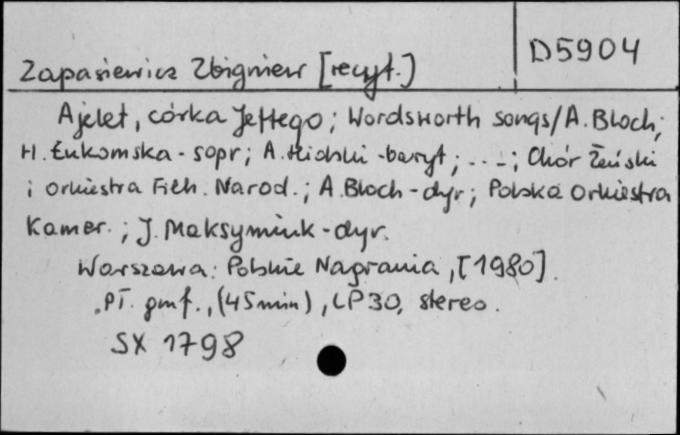 D5904
Zapasiewicz Zbigniew [recyt.)
Ajelet, córka Jeftego; Wordsworth songs/A. Bloch;
H. Łukomska - sopr; A. Hiolski - baryt; ...; Chór Żeński
i orkiestra Filh. Narod.; A. Bloch - dyr; Polska Orkiestra
Kamer.; J. Maksymiuk - dyr.
Warszawa: Polskie Nagrania, [1980].
PŁ. gmf., (45 min), LP30, stereo.
SX 1798